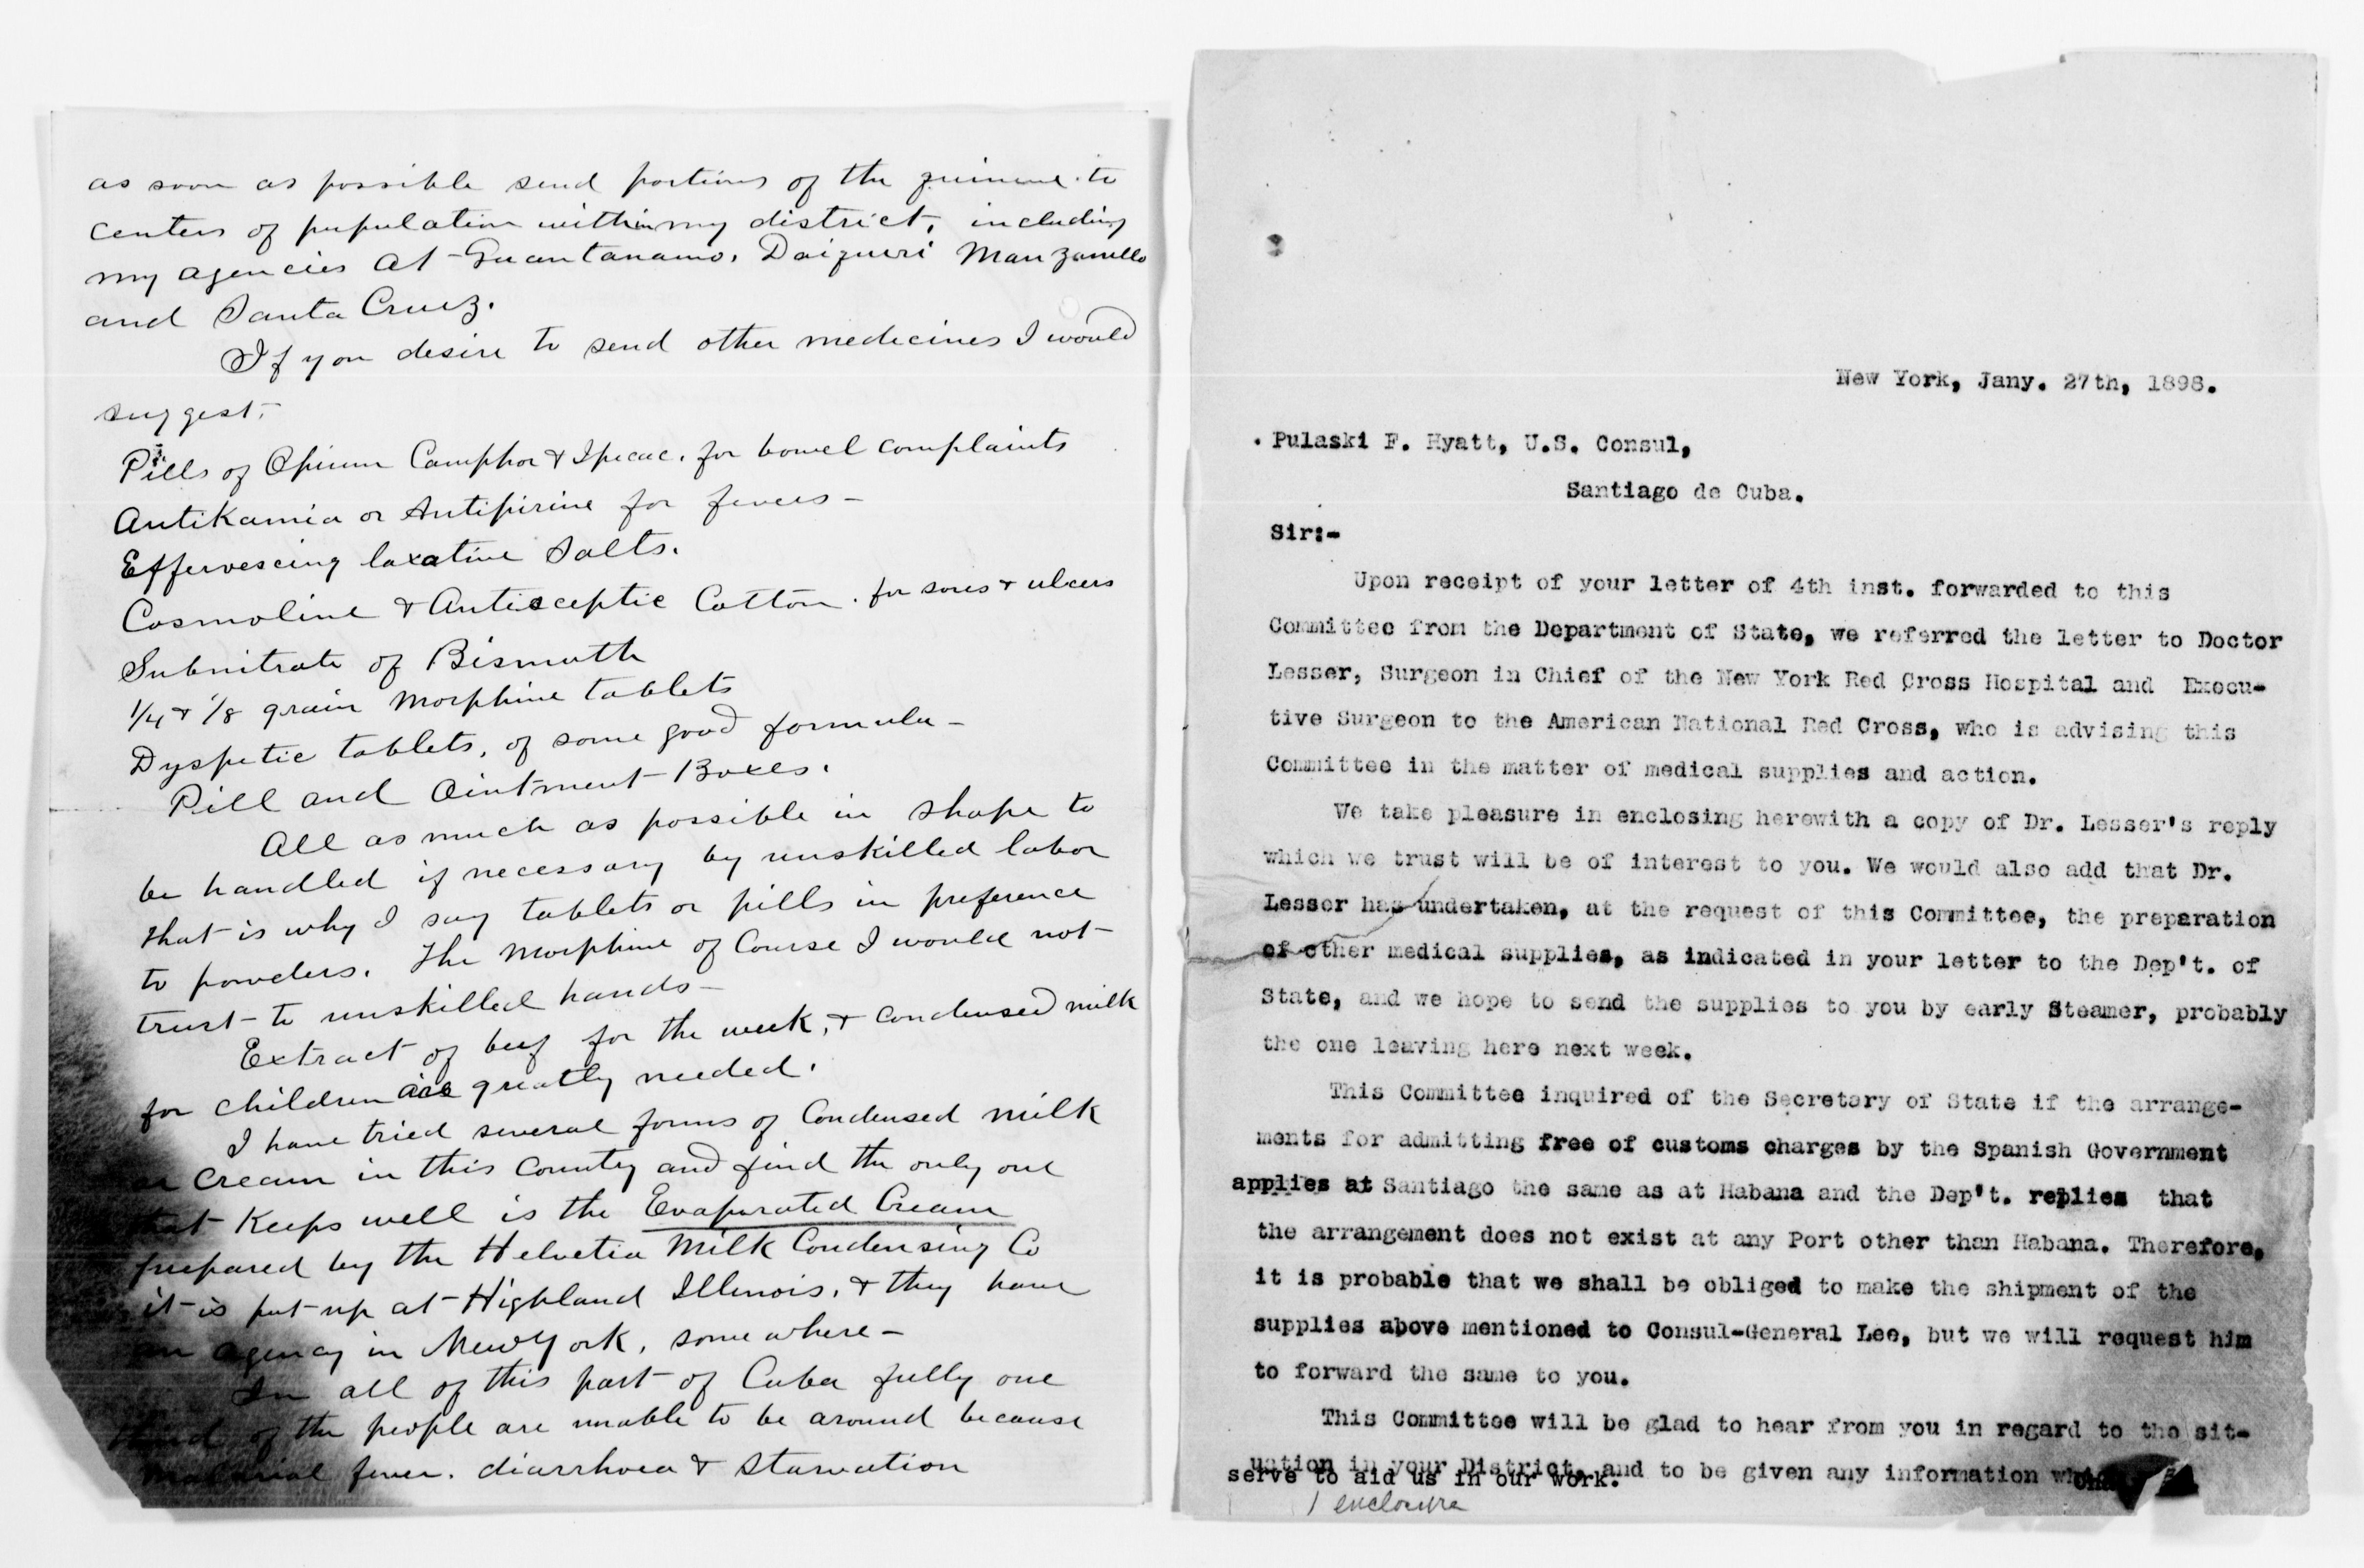 as soon as possible send portions of the quinine to
centers of population within my district, including
my agencies at Guantanamo, Daiqueri Manzanillo
and Santa Cruz.
If you desire to send other medicines I would
suggest,
Pills of Opium Camphor & Ipecac. for bowel complaints
Antikamia or Antipirine for fevers -
Effervescing laxative Salts.
Cosmoline & Antisceptic Cotton. for sores & ulcers
Subnitrate of Bismuth
1/4 & 1/8 grain Morphine tablets
Dyspetic tablets, of some good formula -
Pill and Ointment Boxes.
All as much as possible in shape to
be handled if necessary by unskilled labor
that is why I say tablets or pills in preference
to powders. The Morphine of Course I would not
trust to unskilled hands -
Extract of beef for the week, & condensed milk
for children are greatly needed.
I have tried several forms of Condensed milk
or Cream in this Country and find the only one
that Keeps well is the Evaporated Cream
prepared by the Helvetia Milk Condensing Co
it is put up at Highland Illinois, & they have
an agency in New York, somewhere -
In all of this part of Cuba fully one
third of the people are unable to be around because
malarial fever. diarrhoea & starvation
New York, Jany. 27th, 1898.
Pulaski F. Hyatt, U.S. Consul,
Santiago de Cuba.
Sir:-
Upon receipt of your letter of 4th inst. forwarded to this
Committee from the Department of State, we referred the letter to Doctor
Lesser, Surgeon in Chief of the New York Red Cross Hospital and Execu-
tive Surgeon to the American National Red Cross, who is advising this
Committee in the matter of medical supplies and action.
We take pleasure in enclosing herewith a copy of Dr. Lesser's reply
which we trust will be of interest to you. We would also add that Dr.
Lesser has undertaken, at the request of this Committee, the preparation
of other medical supplies, as indicated in your letter to the Dep't. of
State, and we hope to send the supplies to you by early Steamer, probably
the one leaving here next week.
This Committee inquired of the Secretary of State if the arrange-
ments for admitting free of customs charges by the Spanish Government
applies at Santiago the same as at Habana and the Dep't. replies that
the arrangement does not exist at any Port other than Habana. Therefore,
it is probable that we shall be obliged to make the shipment of the
supplies above mentioned to Consul-General Lee, but we will request him
to forward the same to you.
This Committee will be glad to hear from you in regard to the sit-
uation in your District, and to be given any information
serve to aid us in our work.
1 enclosure